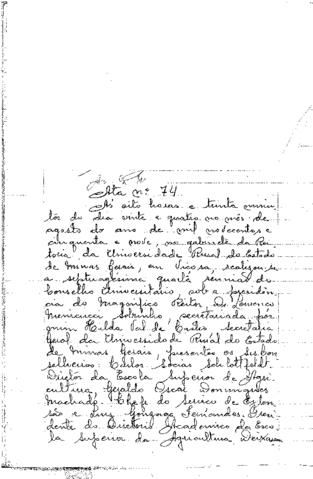 Ata nº 74
Às oito horas e trinta minu
tos do dia vinte e quatro no mês de
agosto do ano de mil novecentos e
cinquenta e nove, no gabinete da Rei
toria da Universidade Rural do Estado
de Minas Gerais, em Viçosa, realizou-se
a septuagésima quarta reunião do
Conselho Universitário, sob a presidên
cia do Magnífico Reitor Dr. Lourenço
Menicucci Sobrinho, secretariada por
mim Hilda Val de Castro, secretária
Geral da Universidade Rural do Estado
de Minas Gerais, presentes os Srs. Con
selheiros: Carlos Socias Schlottfeldt
Diretor da Escola Superior de Agri
cultura, Geraldo Oscar Domingues
Machado, Chefe do Serviço de Exten
são e Luiz Gonzaga Fernandes, Presi
dente do Diretório Acadêmico da Esco
la Superior de Agricultura